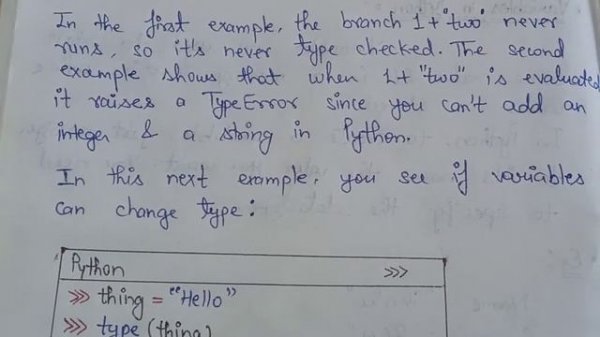 In the first example, the branch 1+'two' never
runs, so it's never type checked. The second
example shows that when 1+ "two" is evaluated
it raises a TypeError since you can't add an
integer & a string in Python.
In this next example, you see if variables
can change type:
Python >>>
>>> thing = "Hello"
>>> type (thing)